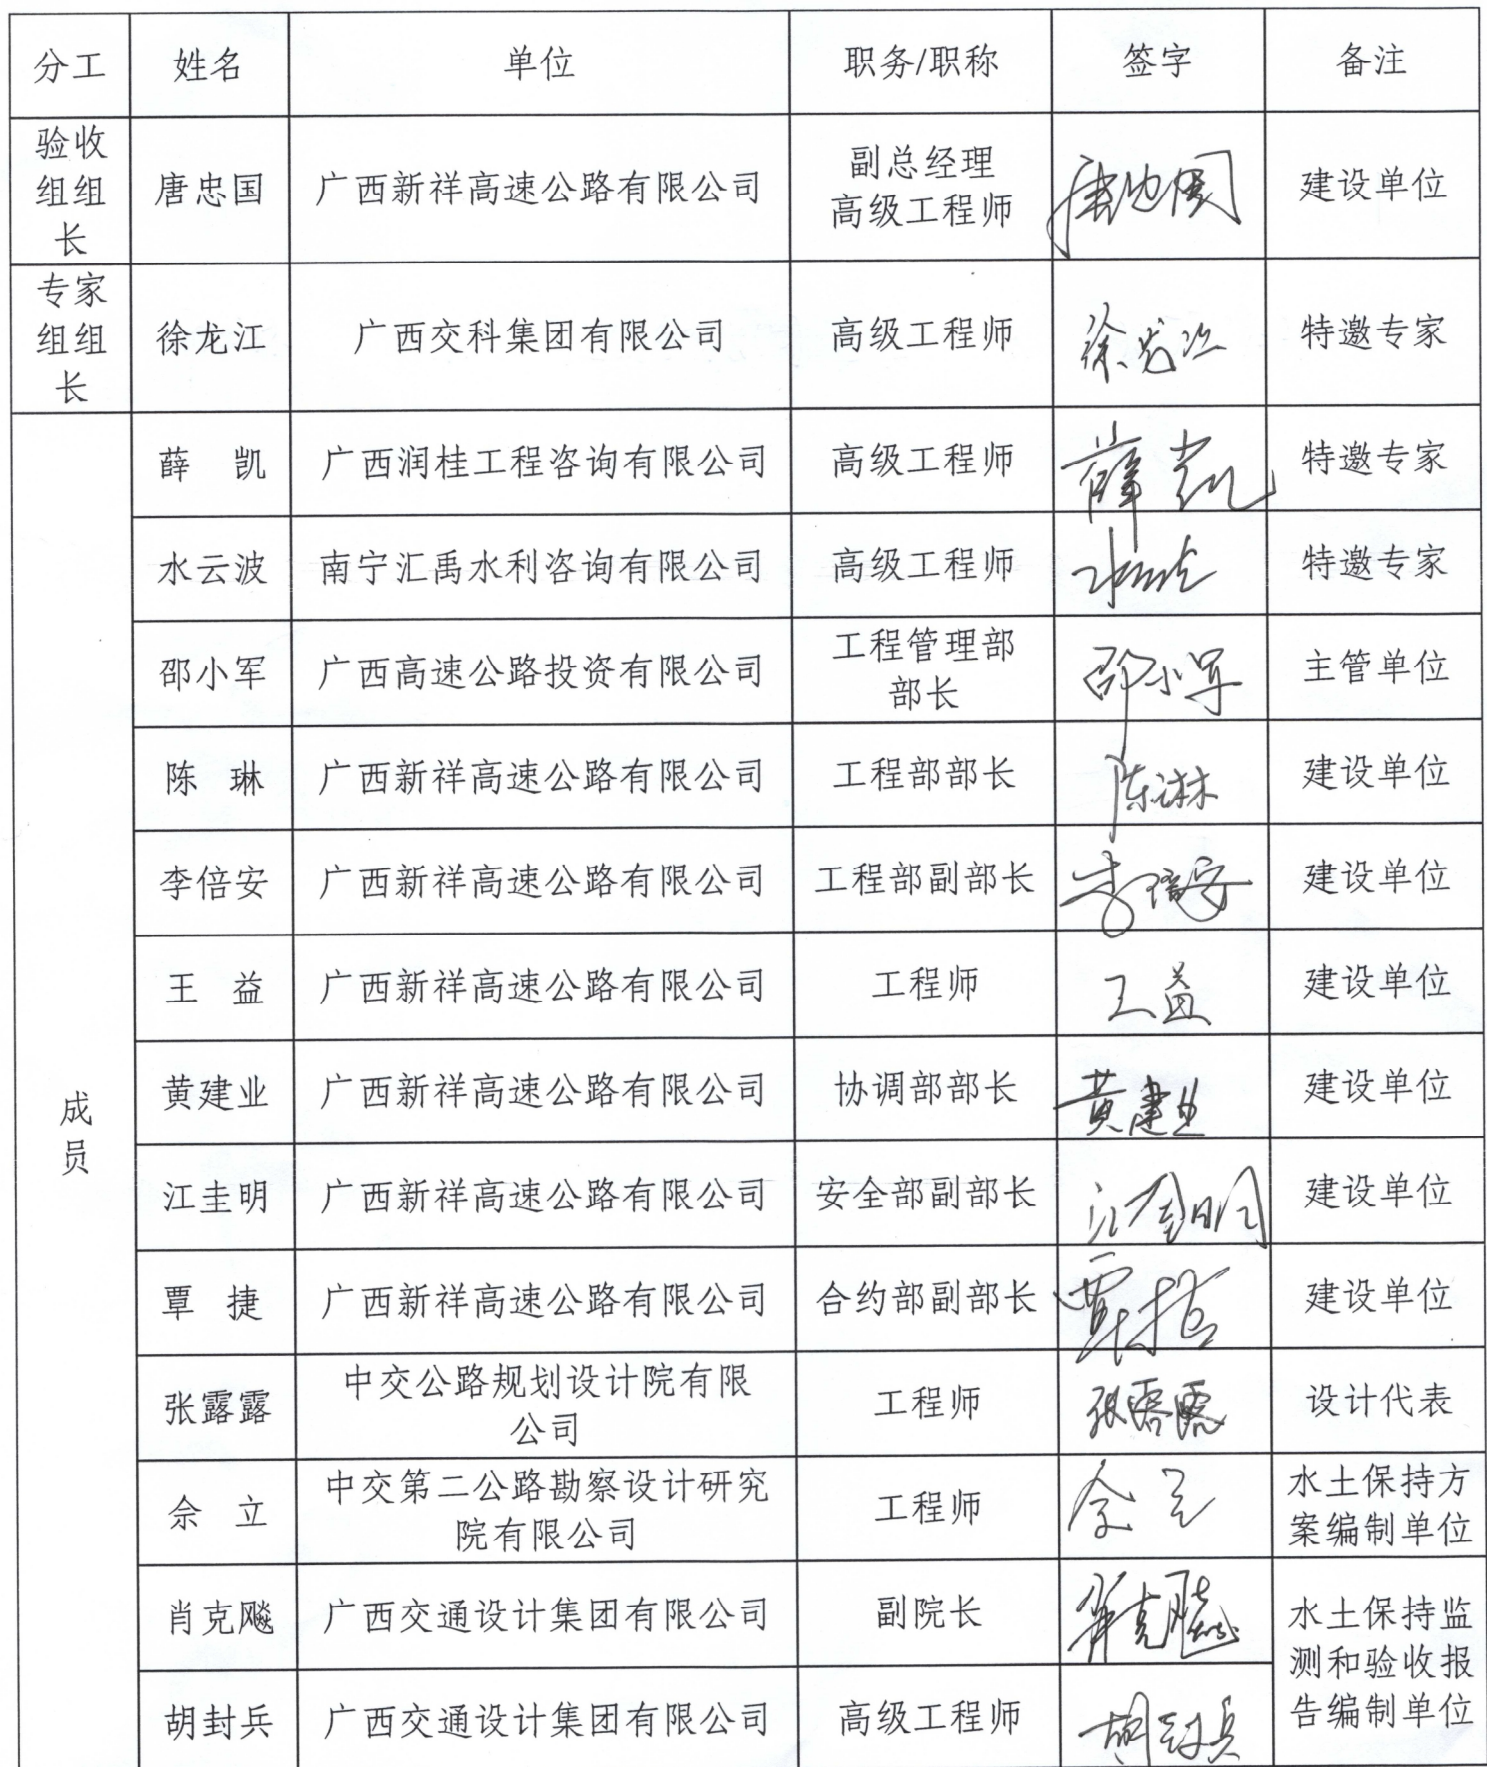 分工 姓名 单位 职务/职称 签字 备注
验收
组组
长
唐忠国 广西新祥高速公路有限公司
副总经理
高级工程师
唐忠国
建设单位
专家
组组
长
徐龙江 广西交科集团有限公司 高级工程师 徐龙江 特邀专家
成
员
薛 凯 广西润桂工程咨询有限公司 高级工程师 薛凯 特邀专家
水云波 南宁汇禹水利咨询有限公司 高级工程师 特邀专家
邵小军 广西高速公路投资有限公司
工程管理部
部长
邵小军
主管单位
陈 琳 广西新祥高速公路有限公司 工程部部长 陈琳 建设单位
李倍安 广西新祥高速公路有限公司 工程部副部长 李倍安 建设单位
王 益 广西新祥高速公路有限公司 工程师 王益 建设单位
黄建业 广西新祥高速公路有限公司 协调部部长 黄建业 建设单位
江圭明 广西新祥高速公路有限公司 安全部副部长 江圭明 建设单位
覃 捷 广西新祥高速公路有限公司 合约部副部长 覃捷 建设单位
张露露
中交公路规划设计院有限
公司
工程师 张露露 设计代表
佘 立
中交第二公路勘察设计研究
院有限公司
工程师 佘立
水土保持方
案编制单位
肖克飚 广西交通设计集团有限公司 副院长 肖克飚
水土保持监
测和验收报
告编制单位
胡封兵 广西交通设计集团有限公司 高级工程师 胡封兵